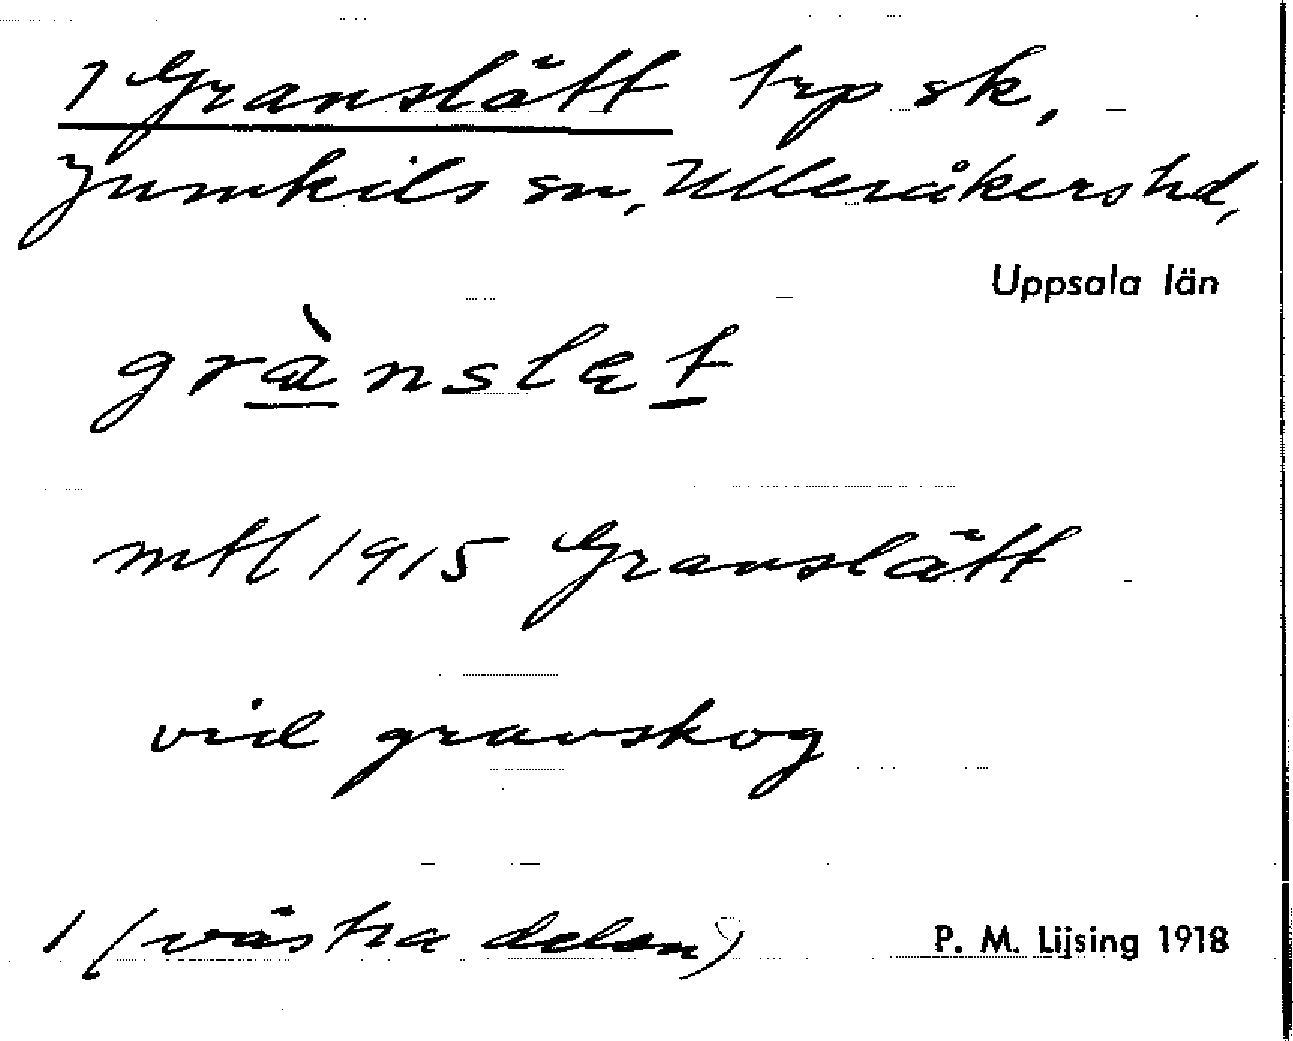 1 Granslätt trp sk.
Jumkils sn, Ulleråkers hd,
Uppsala län
grànslæt
mtl 1915 Granslätt
vid granskog
1 (västra delen)
P. M. Lijsing 1918